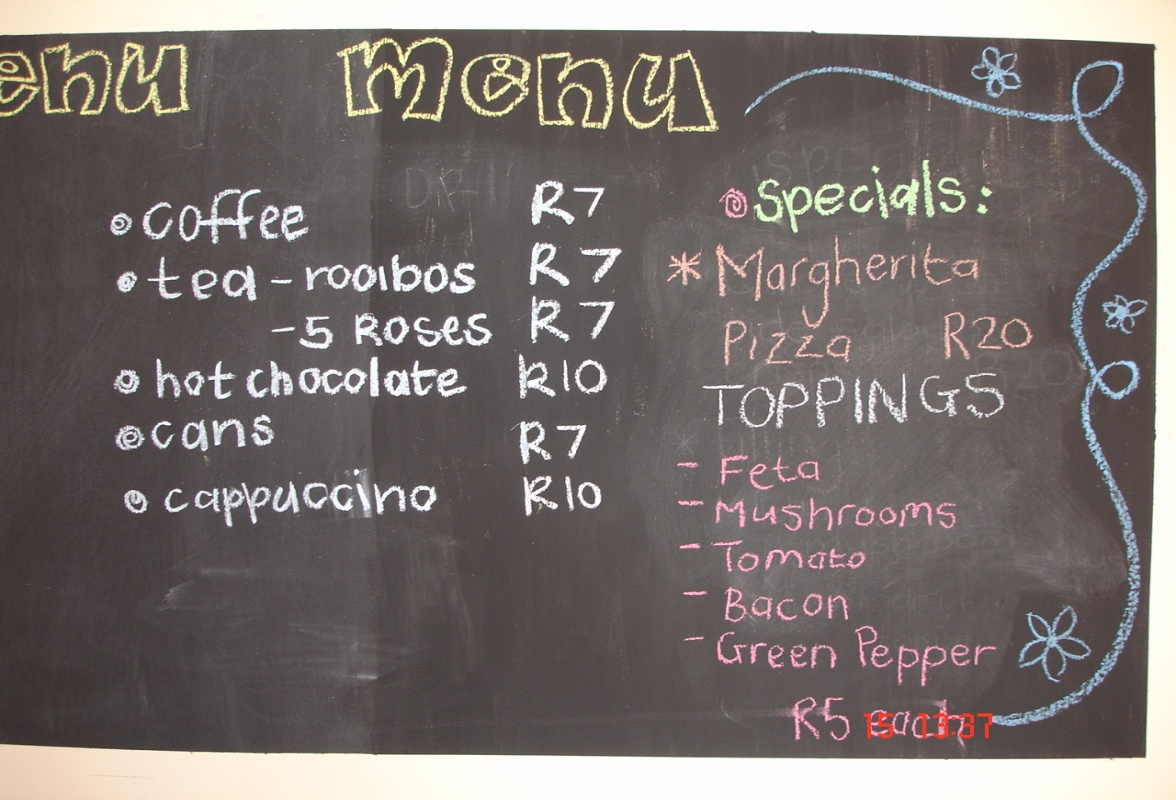 enu menu
coffee R7
tea - rooibos R7
- 5 Roses R7
hot chocolate R10
cans R7
cappuccino R10
Specials:
* Margherita
Pizza R20
TOPPINGS
- Feta
- Mushrooms
- Tomato
- Bacon
- Green Pepper
R5 each
15 13:37